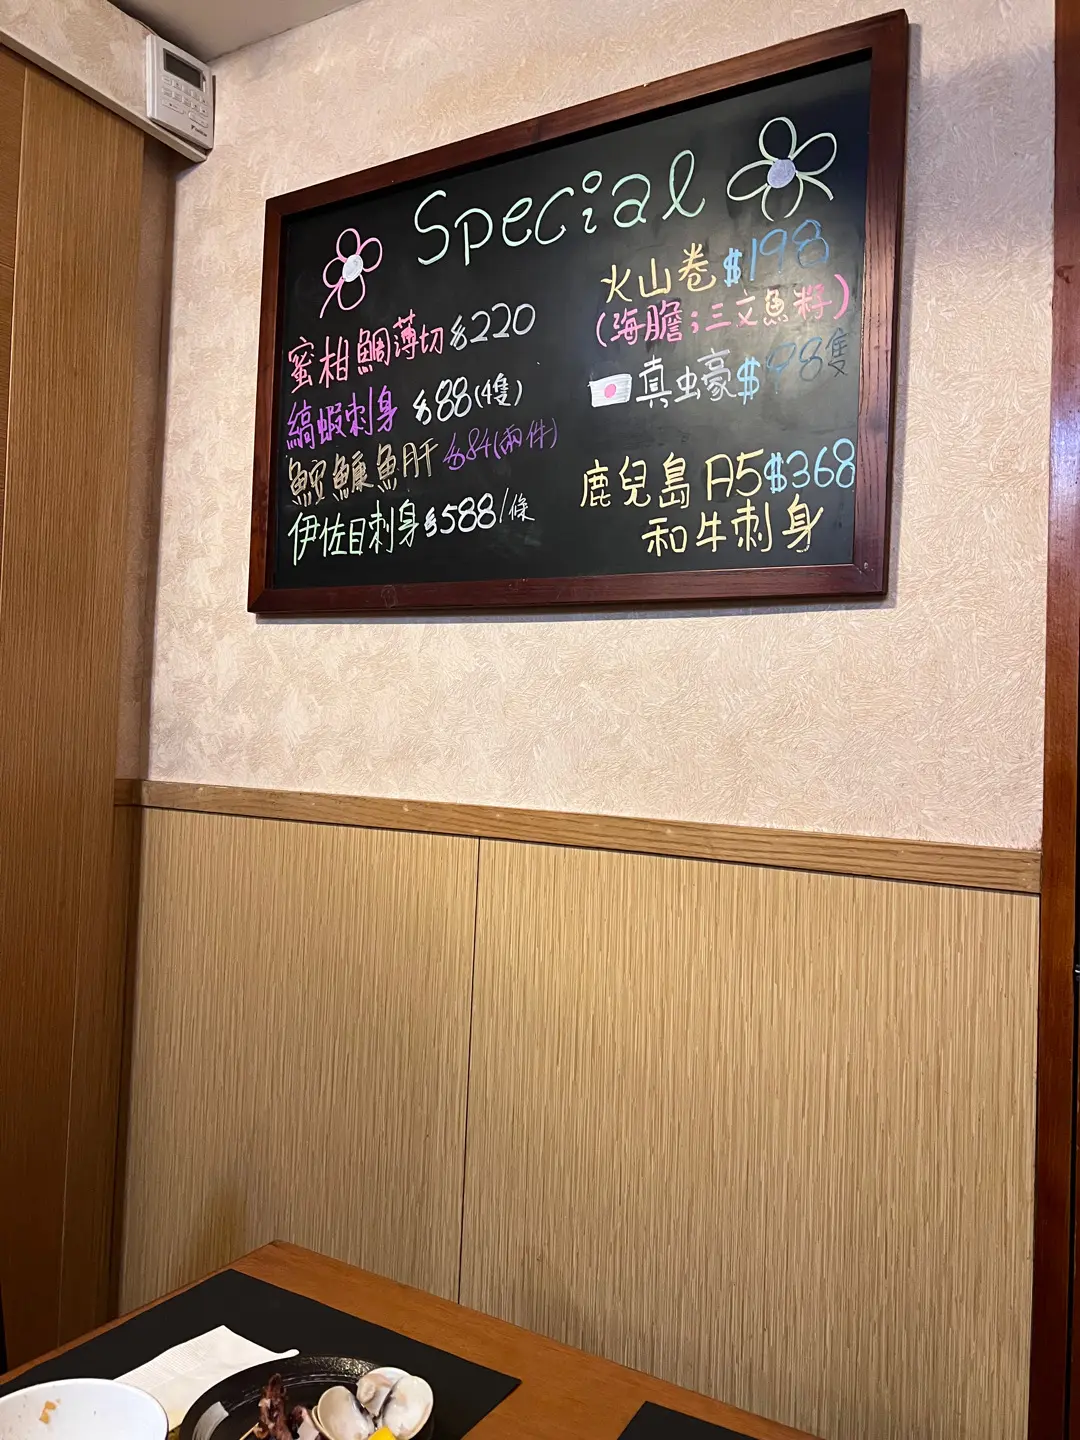 Special
蜜柑鯛薄切 $220
縞蝦刺身 $88(4隻)
鮟鱇魚肝 $84(兩件)
伊佐目刺身 $588/條
火山卷 $198
(海膽;三文魚籽)
真虫豪 $98隻
鹿兒島A5 $368
和牛刺身